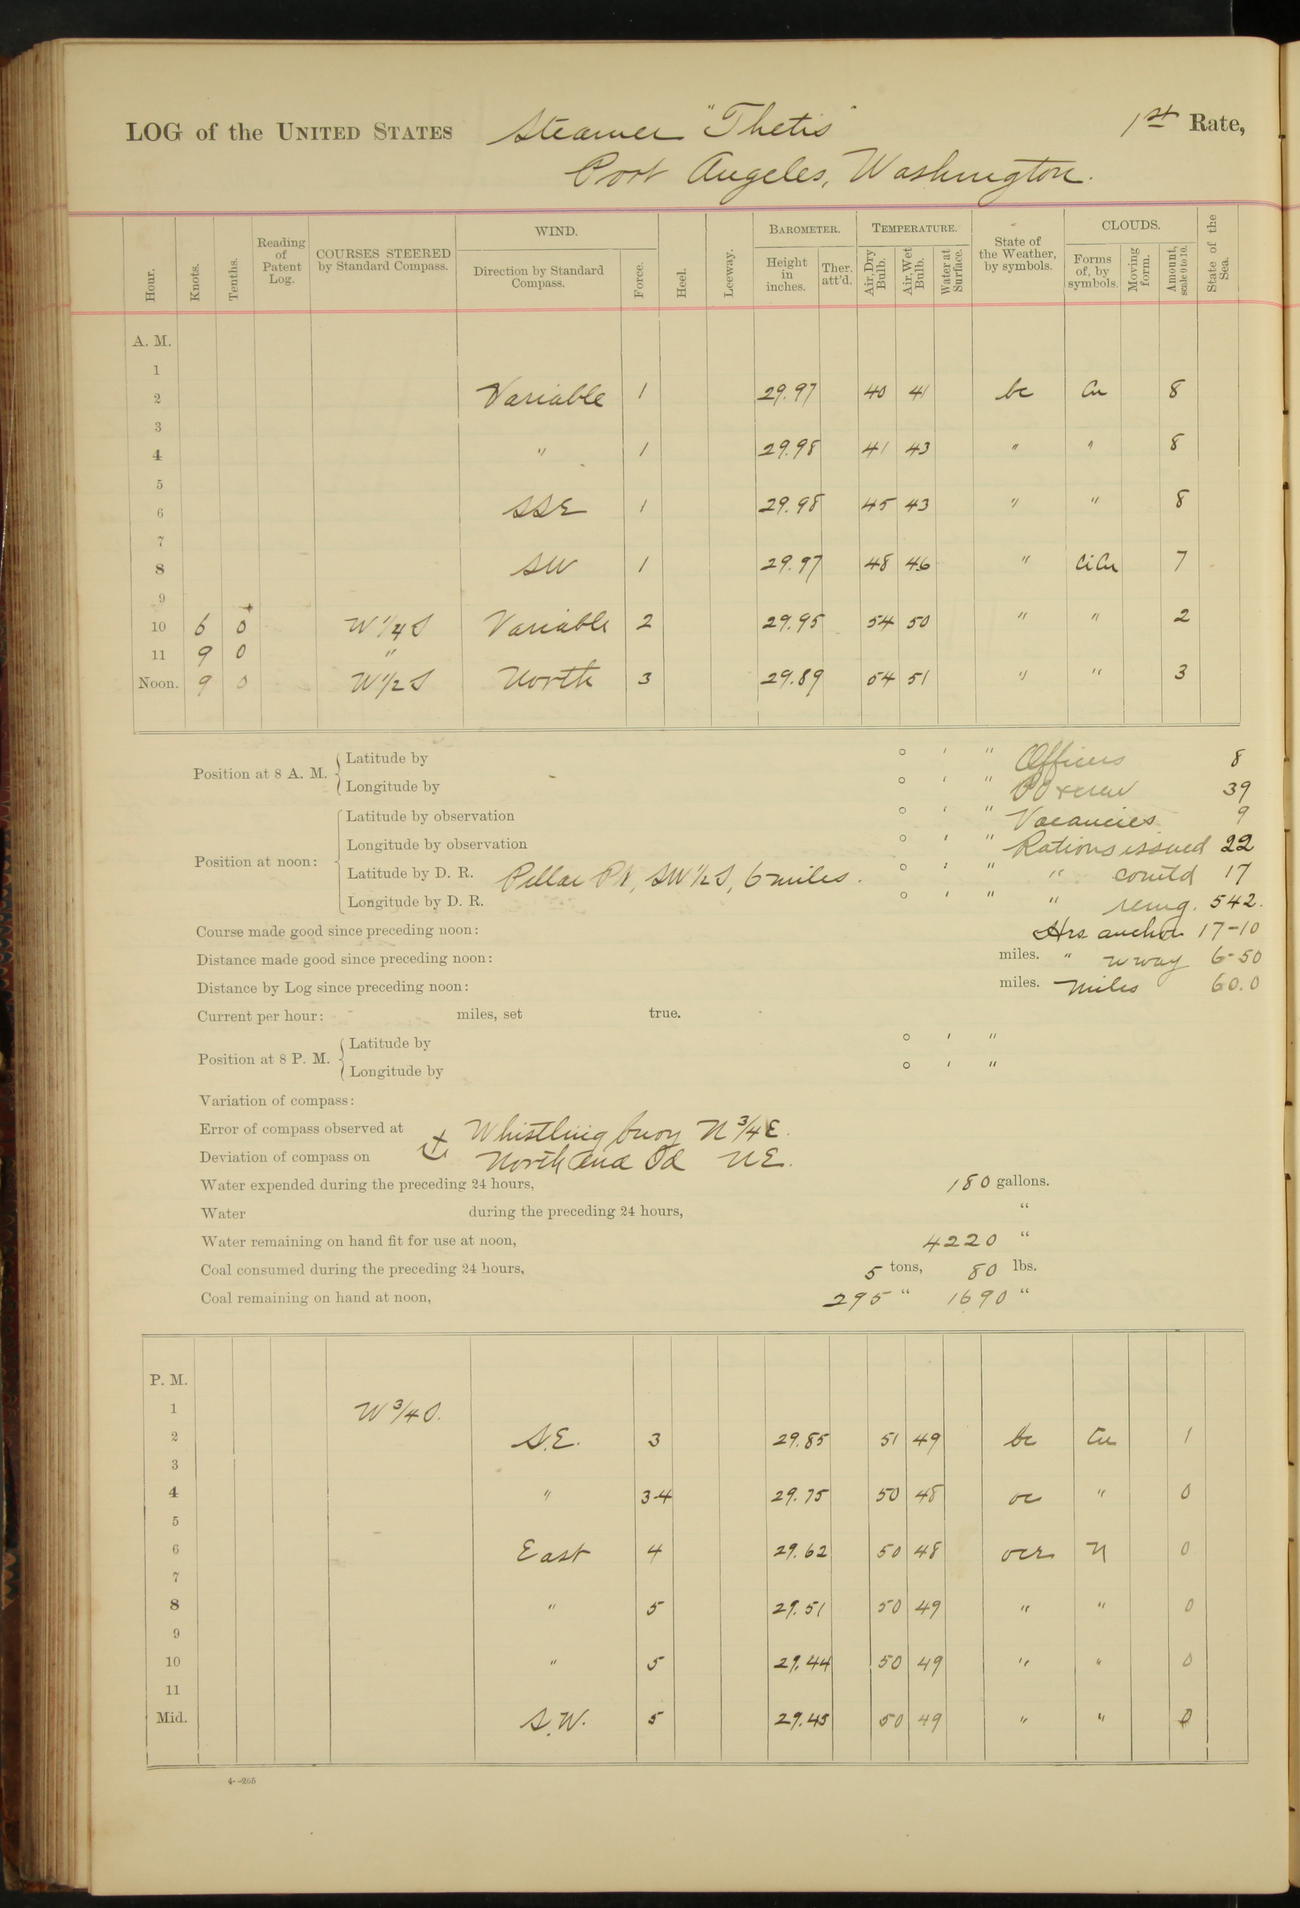 LOG of the UNITED STATES Steamer "Thetis" 1st Rate,
Port Angeles, Washington.
Hour. Knots. Tenths. Reading of Patent Log. COURSES STEERED by Standard Compass. WIND. Direction by Standard Compass. Force. Heel. Leeway. BAROMETER. Height in inches. Ther. att'd. TEMPERATURE. Air, Dry Bulb. Air, Wet Bulb. Water at Surface. State of the Weather, by symbols. CLOUDS. Forms of, by symbols. Moving form. Amount, scale 0 to 10. State of the Sea.
A. M.
1
2 Variable 1 29.97 40 41 bc Cu 8
3
4 " 1 29.98 41 43 " " 8
5
6 SSE 1 29.98 45 43 " " 8
7
8 SW 1 29.97 48 46 " CiCu 7
9
10 6 0 W 1/4 S Variable 2 29.95 54 50 " " 2
11 9 0 "
Noon. 9 0 W 1/2 S North 3 29.89 54 51 " " 3
Position at 8 A. M. Latitude by ° ' " Officers 8
Longitude by ° ' " PO & crew 39
Position at noon: Latitude by observation ° ' " Vacancies 9
Longitude by observation ° ' " Rations issued 22
Latitude by D. R. Pillar Pt, SW 1/2 S, 6 miles. ° ' " " comtd 17
Longitude by D. R. ° ' " " remg. 542.
Course made good since preceding noon: Hrs anchor 17-10
Distance made good since preceding noon: miles. " u way 6-50
Distance by Log since preceding noon: miles. Miles 60.0
Current per hour: miles, set true.
Position at 8 P. M. Latitude by ° ' "
Longitude by ° ' "
Variation of compass:
Error of compass observed at Whistling buoy N 3/4 E.
Deviation of compass on North end Id NE.
Water expended during the preceding 24 hours, 180 gallons.
Water during the preceding 24 hours, "
Water remaining on hand fit for use at noon, 4220 "
Coal consumed during the preceding 24 hours, 5 tons, 80 lbs.
Coal remaining on hand at noon, 295 " 1690 "
P. M.
1 W 3/4 S.
2 S.E. 3 29.85 51 49 bc Cu 1
3
4 " 3-4 29.75 50 48 oc " 0
5
6 East 4 29.62 50 48 ocr N 0
7
8 " 5 29.51 50 49 " " 0
9
10 " 5 29.44 50 49 " " 0
11
Mid. S.W. 5 29.45 50 49 " " 0
4--265